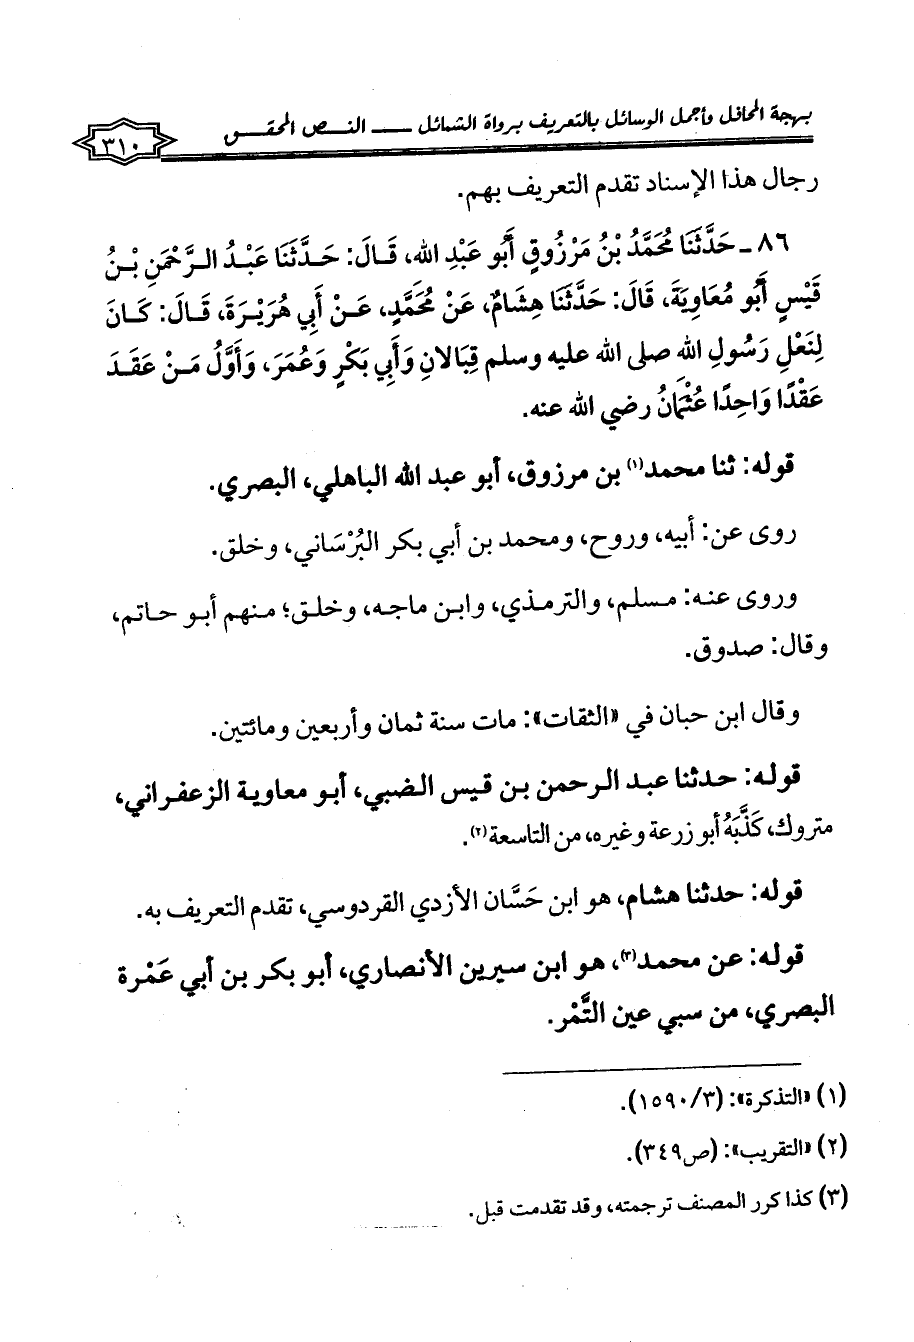 بهجة المحافل وأجمل الوسائل بالتعريف برواة الشمائل ــــ النـــص المحقـــق
٣١٠
رجال هذا الإسناد تقدم التعريف بهم.
٨٦ ـ حَدَّثَنَا مُحَمَّدُ بْنُ مَرْزُوقٍ أَبُو عَبْدِ الله، قَـالَ: حَـدَّثَنَا عَبْـدُ الـرَّحْمَنِ بْـنُ
قَيْسٍ أَبُو مُعَاوِيَةَ، قَالَ: حَدَّثَنَا هِشَامٌ، عَنْ مُحَمَّدٍ، عَـنْ أَبِي هُرَيْـرَةَ، قَـالَ: كَـانَ
لِنَعْلِ رَسُولِ الله صلى الله عليه وسلم قِبَالانِ وَأَبِي بَكْرٍ وَعُمَرَ، وَأَوَّلُ مَـنْ عَقَـدَ
عَقْدًا وَاحِدًا عُثْمَانُ رضي الله عنه.
قوله: ثنا محمد(١) بن مرزوق، أبو عبد الله الباهلي، البصري.
روى عن: أبيه، وروح، ومحمد بن أبي بكر البُرْسَاني، وخلق.
وروى عنـه: مـسلم، والترمـذي، وابـن ماجـه، وخلـق؛ مـنهم أبـو حـاتم،
وقال: صدوق.
وقال ابن حبان في «الثقات»: مات سنة ثمان وأربعين ومائتين.
قولـه: حدثنا عبـد الـرحمن بـن قـيس الـضبي، أبـو معاويـة الزعفـراني،
متروك، كَذَّبَهُ أبو زرعة وغيره، من التاسعة(٢).
قوله: حدثنا هشام، هو ابن حَسَّان الأزدي القردوسي، تقدم التعريف به.
قوله: عن محمد(٣)، هو ابن سيرين الأنصاري، أبو بكر بن أبي عَمْرة
البصري، من سبي عين التَّمْر.
(١) «التذكرة»: (١٥٩٠/٣).
(٢) «التقريب»: (ص٣٤٩).
(٣) كذا كرر المصنف ترجمته، وقد تقدمت قبل.